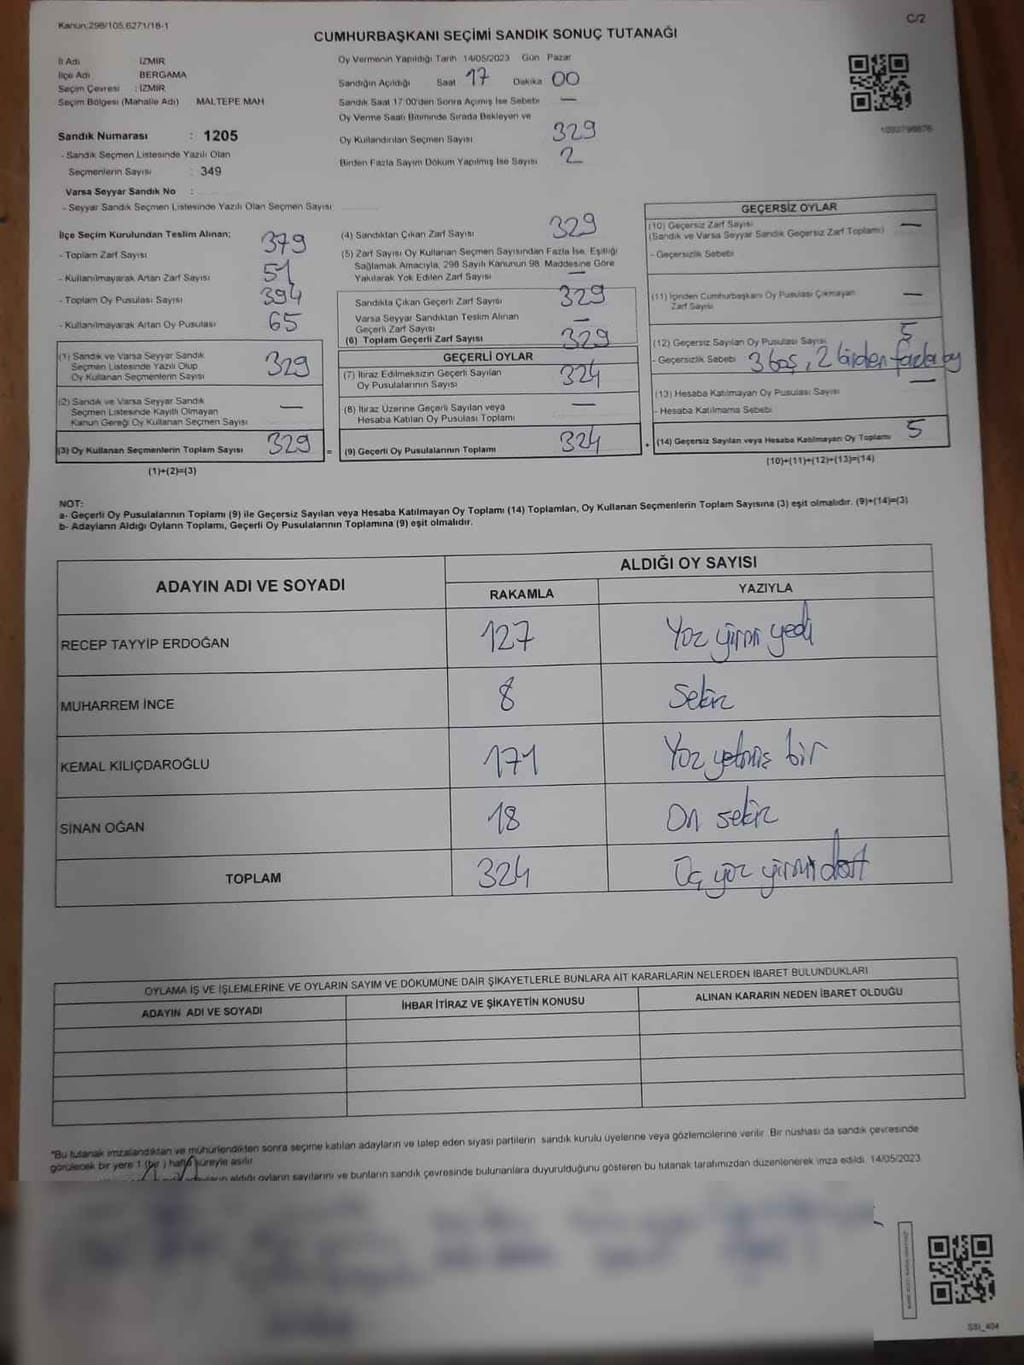 Kanun:298/105,6271/18-1
C/2
CUMHURBAŞKANI SEÇİMİ SANDIK SONUÇ TUTANAĞI
İl Adı İZMİR
İlçe Adı BERGAMA
Seçim Çevresi : İZMİR
Seçim Bölgesi (Mahalle Adı) MALTEPE MAH
Sandık Numarası : 1205
- Sandık Seçmen Listesinde Yazılı Olan
Seçmenlerin Sayısı 349
Varsa Seyyar Sandık No :
- Seyyar Sandık Seçmen Listesinde Yazılı Olan Seçmen Sayısı
Oy Vermenin Yapıldığı Tarih 14/05/2023 Gün Pazar
Sandığın Açıldığı Saat 17 Dakika 00
Sandık Saat 17:00'den Sonra Açımış İse Sebebi —
Oy Verme Saati Bitiminde Sırada Bekleyen ve
Oy Kullandırılan Seçmen Sayısı 329
Birden Fazla Sayım Döküm Yapılmış İse Sayısı 2
İlçe Seçim Kurulundan Teslim Alınan;
- Toplam Zarf Sayısı 379
- Kullanılmayarak Artan Zarf Sayısı 51
- Toplam Oy Pusulası Sayısı 394
- Kullanılmayarak Artan Oy Pusulası 65
(1) Sandık ve Varsa Seyyar Sandık
Seçmen Listesinde Yazılı Olup
Oy Kullanan Seçmen Sayısı 329
(2) Sandık ve Varsa Seyyar Sandık
Seçmen Listesinde Kayıtlı Olmayan
Kanun Gereği Oy Kullanan Seçmen Sayısı —
(3) Oy Kullanan Seçmenlerin Toplam Sayısı 329
(1)+(2)=(3)
(4) Sandıktan Çıkan Zarf Sayısı 329
(5) Zarf Sayısı Oy Kullanan Seçmen Sayısından Fazla İse, Eşitliği
Sağlamak Amacıyla, 298 Sayılı Kanunun 98. Maddesine Göre
Yakılarak Yok Edilen Zarf Sayısı —
Sandıkta Çıkan Geçerli Zarf Sayısı 329
Varsa Seyyar Sandıktan Teslim Alınan
Geçerli Zarf Sayısı —
(6) Toplam Geçerli Zarf Sayısı 329
GEÇERLİ OYLAR
(7) İtiraz Edilmeksizin Geçerli Sayılan
Oy Pusulalarının Sayısı 324
(8) İtiraz Üzerine Geçerli Sayılan veya
Hesaba Katılan Oy Pusulası Toplamı —
= (9) Geçerli Oy Pusulalarının Toplamı 324
GEÇERSİZ OYLAR
(10) Geçersiz Zarf Sayısı —
(Sandık ve Varsa Seyyar Sandık Geçersiz Zarf Toplamı)
- Geçersizlik Sebebi
(11) İçinden Cumhurbaşkanı Oy Pusulası Çıkmayan
Zarf Sayısı —
(12) Geçersiz Sayılan Oy Pusulası Sayısı 5
- Geçersizlik Sebebi 3 boş, 2 birden fazla oy
(13) Hesaba Katılmayan Oy Pusulası Sayısı —
- Hesaba Katılmama Sebebi
+ (14) Geçersiz Sayılan veya Hesaba Katılmayan Oy Toplamı 5
(10)+(11)+(12)+(13)=(14)
NOT:
a- Geçerli Oy Pusulalarının Toplamı (9) ile Geçersiz Sayılan veya Hesaba Katılmayan Oy Toplamı (14) Toplamları, Oy Kullanan Seçmenlerin Toplam Sayısına (3) eşit olmalıdır. (9)+(14)=(3)
b- Adayların Aldığı Oyların Toplamı, Geçerli Oy Pusulalarının Toplamına (9) eşit olmalıdır.
ADAYIN ADI VE SOYADI ALDIĞI OY SAYISI
RAKAMLA YAZIYLA
RECEP TAYYİP ERDOĞAN 127 Yüz yirmi yedi
MUHARREM İNCE 8 Sekiz
KEMAL KILIÇDAROĞLU 171 Yüz yetmiş bir
SİNAN OĞAN 18 On sekiz
TOPLAM 324 Üç yüz yirmi dört
OYLAMA İŞ VE İŞLEMLERİNE VE OYLARIN SAYIM VE DÖKÜMÜNE DAİR ŞİKAYETLERLE BUNLARA AİT KARARLARIN NELERDEN İBARET BULUNDUKLARI
ADAYIN ADI VE SOYADI İHBAR İTİRAZ VE ŞİKAYETİN KONUSU ALINAN KARARIN NEDEN İBARET OLDUĞU
"Bu tutanak imzalandıktan ve mühürlendikten sonra seçime katılan adayların ve talep eden siyasi partilerin sandık kurulu üyelerine veya gözlemcilerine verilir. Bir nüshası da sandık çevresinde
görülecek bir yere 1 (bir) hafta süreyle asılır.
aldığı oyların sayılarını ve bunların sandık çevresinde bulunanlara duyurulduğunu gösteren bu tutanak tarafımızdan düzenlenerek imza edildi. 14/05/2023
SSI_404